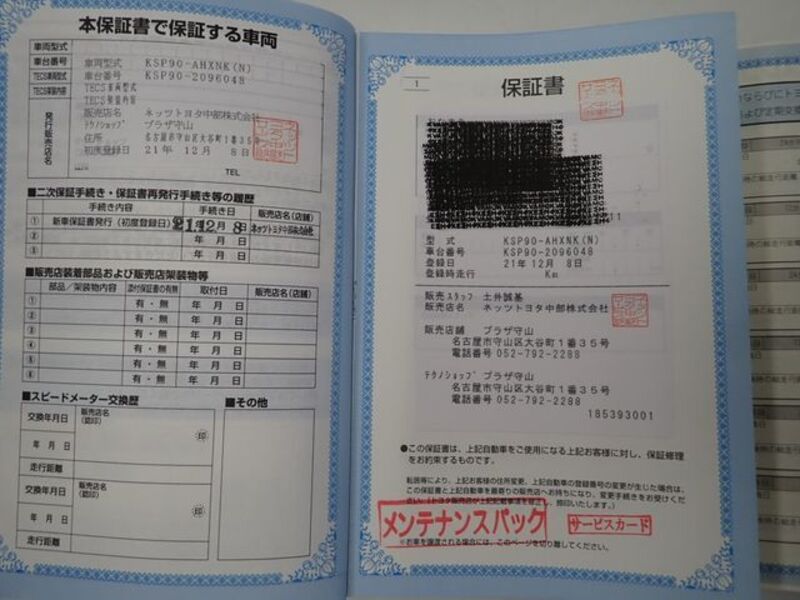 本保証書で保証する車両
車両型式
車両型式 KSP90-AHXNK(N)
車台番号
車台番号 KSP90-2096048
TECS車両型式
TECS車両型式
TECS架装内容
TECS架装内容
発行販売店名
販売店名 ネッツトヨタ中部株式会社
テクノショップ プラザ守山
住所 名古屋市守山区大谷町1番35号
初度登録日 21年 12月 8日
TEL
■二次保証手続き・保証書再発行手続き等の履歴
手続き内容 手続き日 販売店名(店舗)
① 新車保証書発行(初度登録日) 21年12月 8日 ネッツトヨタ中部株式会社
② 年 月 日
③ 年 月 日
■販売店装着部品および販売店架装物等
部品/架装物内容 添付保証書の有無 取付日 販売店名(店舗)
① 有・無 年 月 日
② 有・無 年 月 日
③ 有・無 年 月 日
④ 有・無 年 月 日
⑤ 有・無 年 月 日
⑥ 有・無 年 月 日
■スピードメーター交換歴
■その他
交換年月日 販売店名(認印)
年 月 日 印
走行距離
交換年月日 販売店名(認印)
年 月 日 印
走行距離
1
保証書
型 式 KSP90-AHXNK(N)
車台番号 KSP90-2096048
登録日 21年 12月 8日
登録時走行 Km
販売スタッフ 土井誠基
販売店名 ネッツトヨタ中部株式会社
販売店舗 プラザ守山
名古屋市守山区大谷町1番35号
電話番号 052-792-2288
テクノショップ プラザ守山
名古屋市守山区大谷町1番35号
電話番号 052-792-2288
185393001
●この保証書は、上記自動車をご使用になる上記お客様に対し、保証修理
をお約束するものです。
転居等により、上記お客様の住所変更、上記自動車の登録番号の変更が生じた場合は、
この保証書と上記自動車を最寄りの販売店へお持ちになり、変更手続きをお受けくだ
さい。(トヨタ販売店が上記記載事項を修正し、捺印いたします。)
メンテナンスパック
サービスカード
※お車を譲渡される場合には、このページを切り離してください。